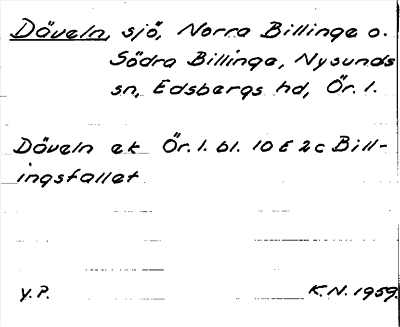 Däveln, sjö, Norra Billinge o.
Södra Billinge, Nysunds
sn, Edsbergs hd, Ör. l.
Däveln ek Ör. l. bl. 10 E 2 c Bill-
ingsfallet
y.P. K.N. 1959.